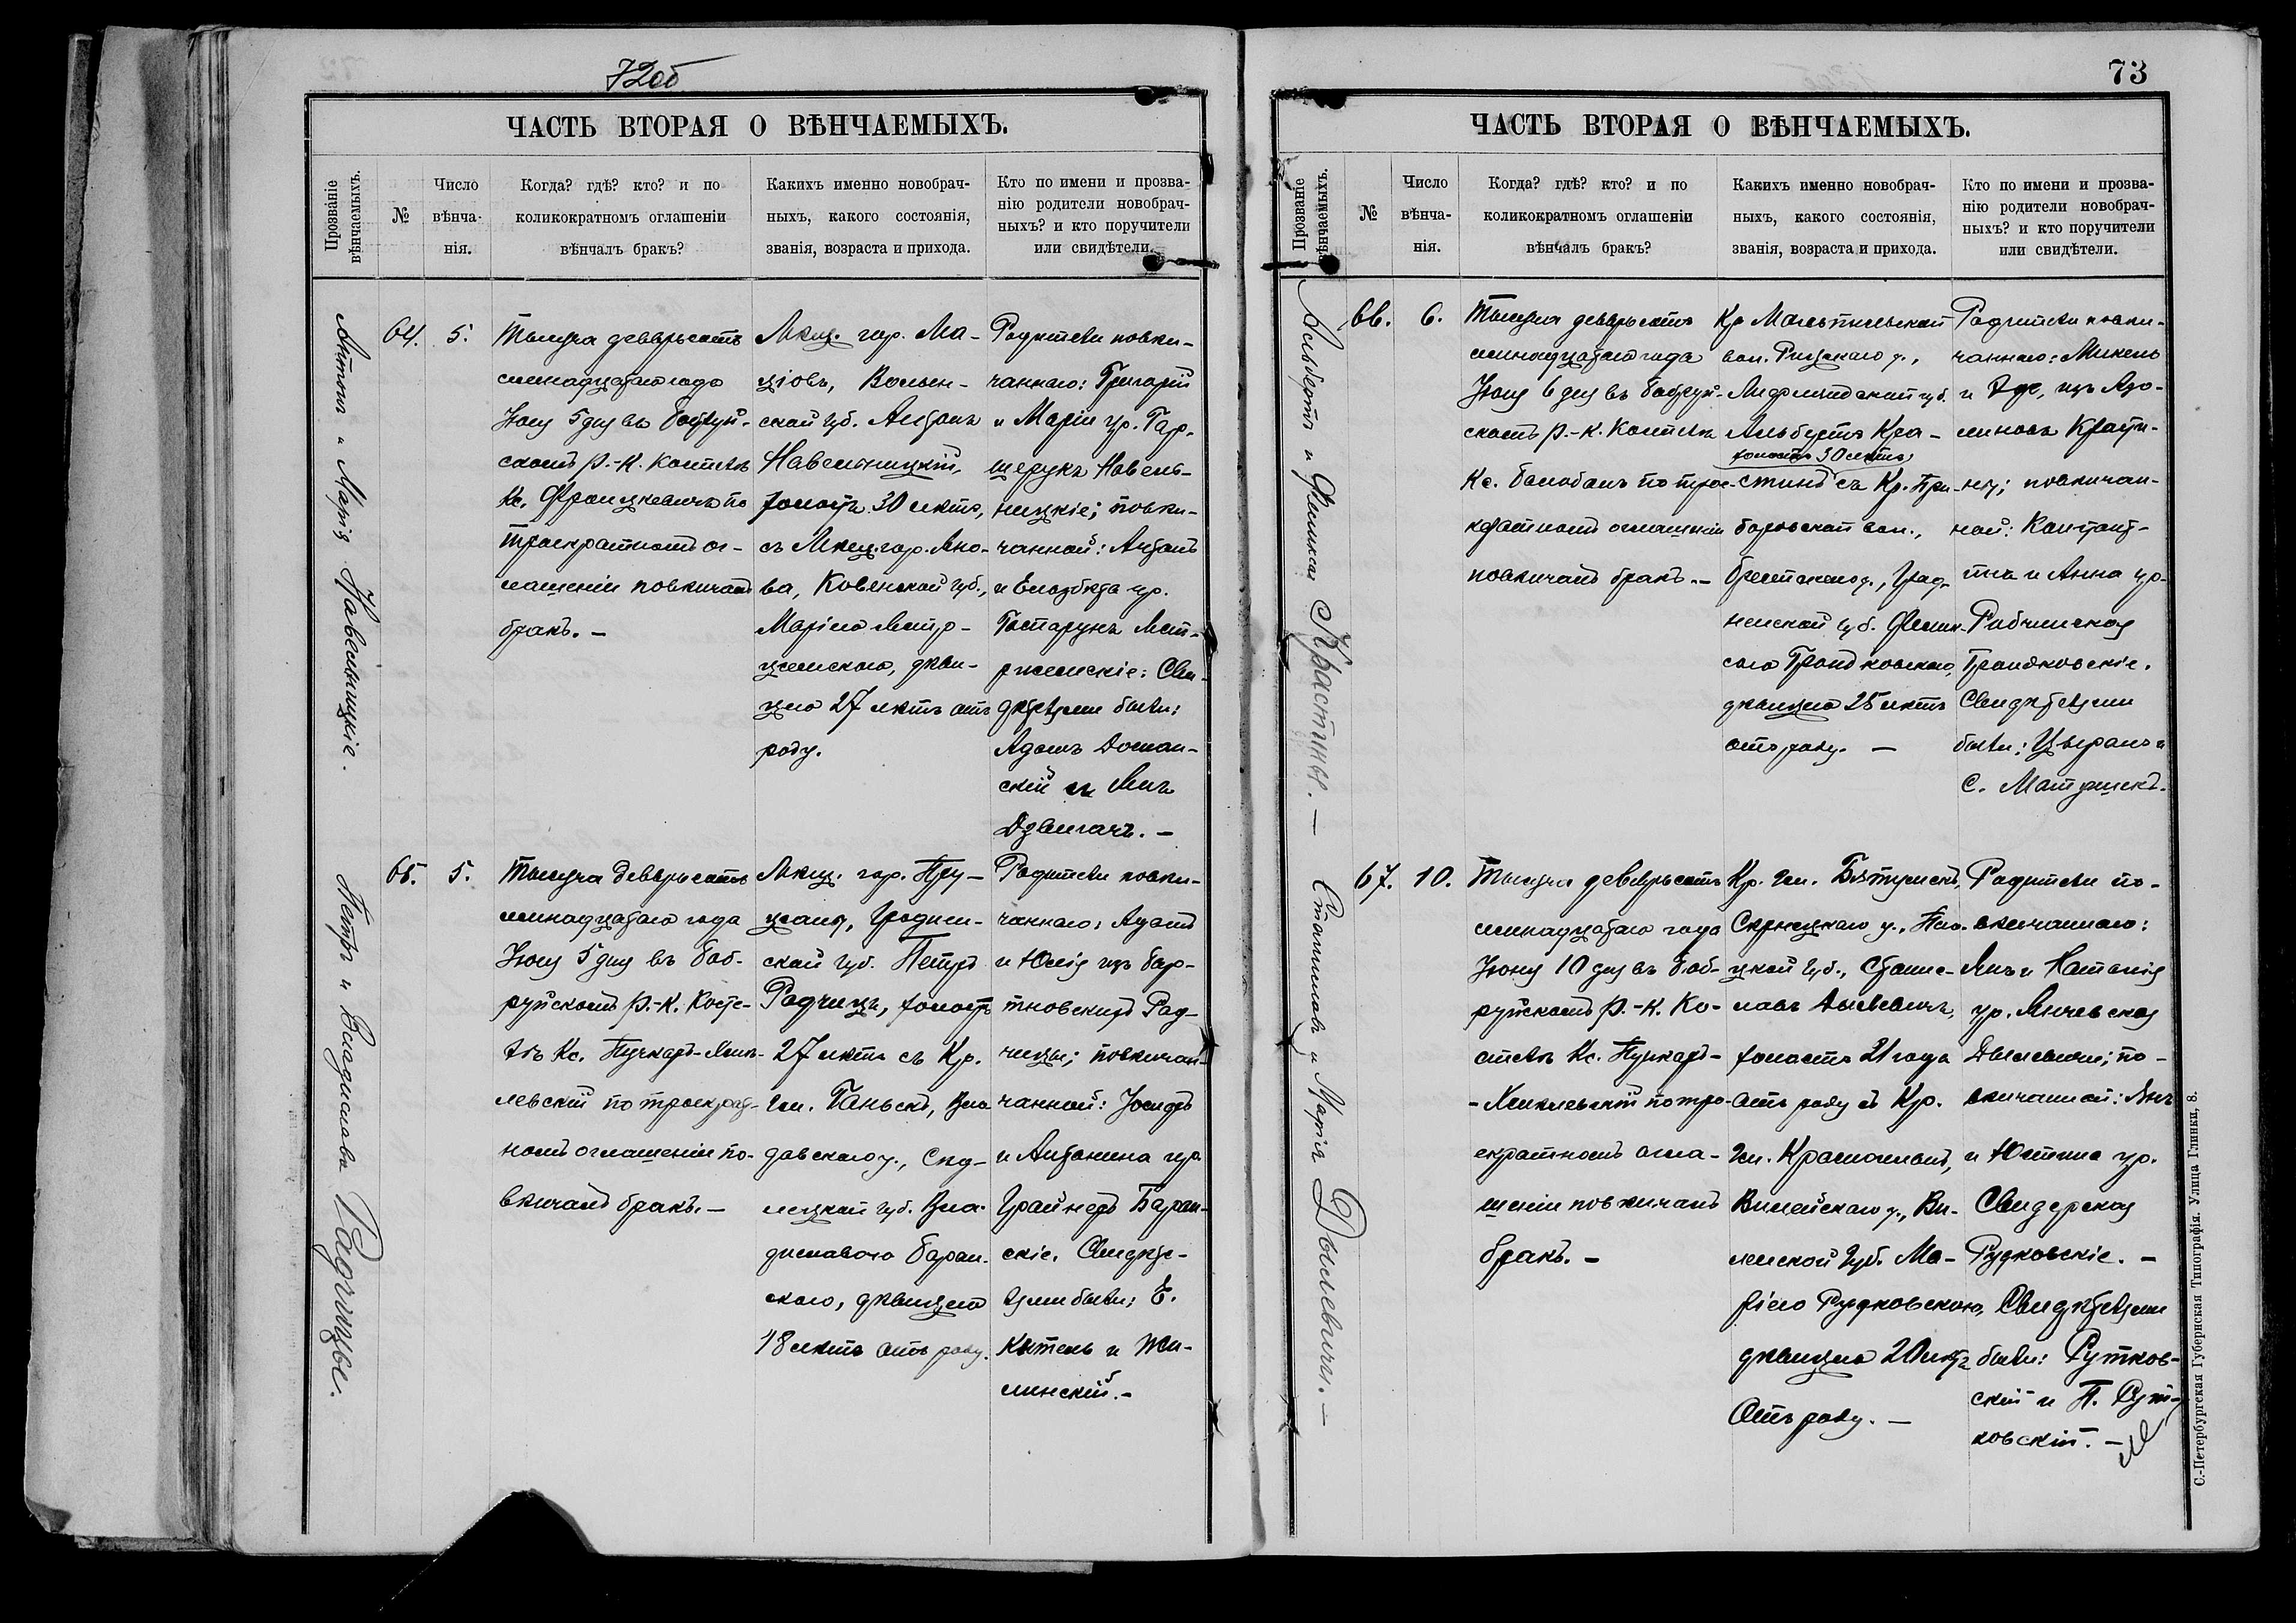 72об
ЧАСТЬ ВТОРАЯ О ВѢНЧАЕМЫХЪ.
Прозваніе
вѣнчаемыхъ.
№
Число
вѣнча-
нія.
Когда? гдѣ? кто? и по
коликократномъ оглашеніи
вѣнчалъ бракъ?
Какихъ именно новобрач-
ныхъ, какого состоянія,
званія, возраста и прихода.
Кто по имени и прозва-
нію родители новобрач-
ныхъ? и кто поручители
или свидѣтели.
Антонъ и Марія Навельницкіе.
64.
5.
Тысяча девятьсотъ
семнадцатаго года
Іюня 5 дня въ Бобруй-
скомъ Р.-К. Костелѣ
Кс. Францкевичъ по
троекратномъ ог-
лашеніи повѣнчалъ
бракъ. –
Мѣщ. гор. Ма-
ціовъ, Волын-
ской губ. Антонъ
Навельницкій,
холостъ 30 лѣтъ,
съ Мѣщ. гор. Яно-
ва, Ковенской губ.,
Маріею
дѣви-
цею 27 лѣтъ отъ
роду.
Родители повѣн-
чаннаго: Григорій
и Марія ур. Гар-
щерукъ Навель-
ницкіе; повѣн-
чанной: Антонъ
и Елизавета ур.
Гаспарунъ
Сви-
дѣтелями были:
Адамъ Доман-
скій и Янъ
Дзвигачъ. –
Петръ и Владислава Радчицы.
65.
5.
Тысяча девятьсотъ
семнадцатаго года
Іюня 5 дня въ Боб-
руйскомъ Р.-К. Косте-
лѣ Кс. Пучкаръ-Хмѣ-
левскій по троекрат-
номъ оглашеніи по-
вѣнчалъ бракъ. –
Мѣщ. гор. Пру-
жаны, Гроднен-
ской губ. Петръ
Радчицъ, холостъ
27 лѣтъ съ Кр.
гм. Баньскъ, Вло-
давскаго у., Сѣд-
лецкой губ. Вла-
диславою Баран-
скою, дѣвицею
18 лѣтъ отъ роду.
Родители повѣн-
чаннаго: Адамъ
и Юлія изъ Бар-
тновскихъ Рад-
чицы; повѣнчан-
чанной: Іосифъ
и Антонина ур.
Грайнертъ Баран-
скіе. Свидѣте-
лями были: Е.
Кытель и Жи-
линскій. –
73
ЧАСТЬ ВТОРАЯ О ВѢНЧАЕМЫХЪ.
Прозваніе
вѣнчаемыхъ.
№
Число
вѣнча-
нія.
Когда? гдѣ? кто? и по
коликократномъ оглашеніи
вѣнчалъ бракъ?
Какихъ именно новобрач-
ныхъ, какого состоянія,
званія, возраста и прихода.
Кто по имени и прозва-
нію родители новобрач-
ныхъ? и кто поручители
или свидѣтели.
Альбертъ и Феликса Крастины. –
66.
6.
Тысяча девятьсотъ
семнадцатаго года
Іюня 6 дня въ Бобруй-
скомъ Р.-К. Костелѣ
Кс. Балобанъ по трое-
кратномъ оглашеніи
повѣнчалъ бракъ. –
Кр. Мальпильской
вол. Рижскаго у.,
Лифляндской губ.
Альбертъ Кра-
холостъ 30 лѣтъ
стинъ съ Кр. При-
боровской вол.,
Брестскаго у., Грод-
ненской губ. Фелик-
сою Грондковскою,
дѣвицею 25 лѣтъ
отъ роду. –
Родители повѣн-
чаннаго: Микель
и Эде, изъ Азо-
линовъ Красти-
ны; повѣнчан-
ной: Констан-
тинъ и Анна ур.
Рабчинская
Грандковскіе.
Свидѣтелями
были: Цыранъ и
С. Матушекъ.
Станиславъ и Марія Дылевичи. –
67.
10.
Тысяча девятьсотъ
семнадцатаго года
Іюня 10 дня въ Боб-
руйскомъ Р.-К. Ко-
стелѣ Кс. Пучкаръ-
-Хмѣлевскій по тро-
екратномъ огла-
шеніи повѣнчалъ
бракъ. –
Кр. гм.
у., Пло-
цкой губ., Стани-
славъ Дылевичъ,
холостъ 21 года
отъ роду съ Кр.
гм.
Вилейскаго у., Ви-
ленской губ. Ма-
ріею Рудковскою,
дѣвицею 20 лѣтъ
отъ роду. –
Родители по-
вѣнчаннаго:
Янъ и Наталія
ур. Янчевская
Дылевичи; по-
вѣнчанной: Янъ
и Юстина ур.
Свидерская
Рудковскіе. –
Свидѣтелями
были: Рутков-
скій и П. Рут-
ковскій. –
С.-Петербургская Губернская Типографія. Улица Глинки, 8.